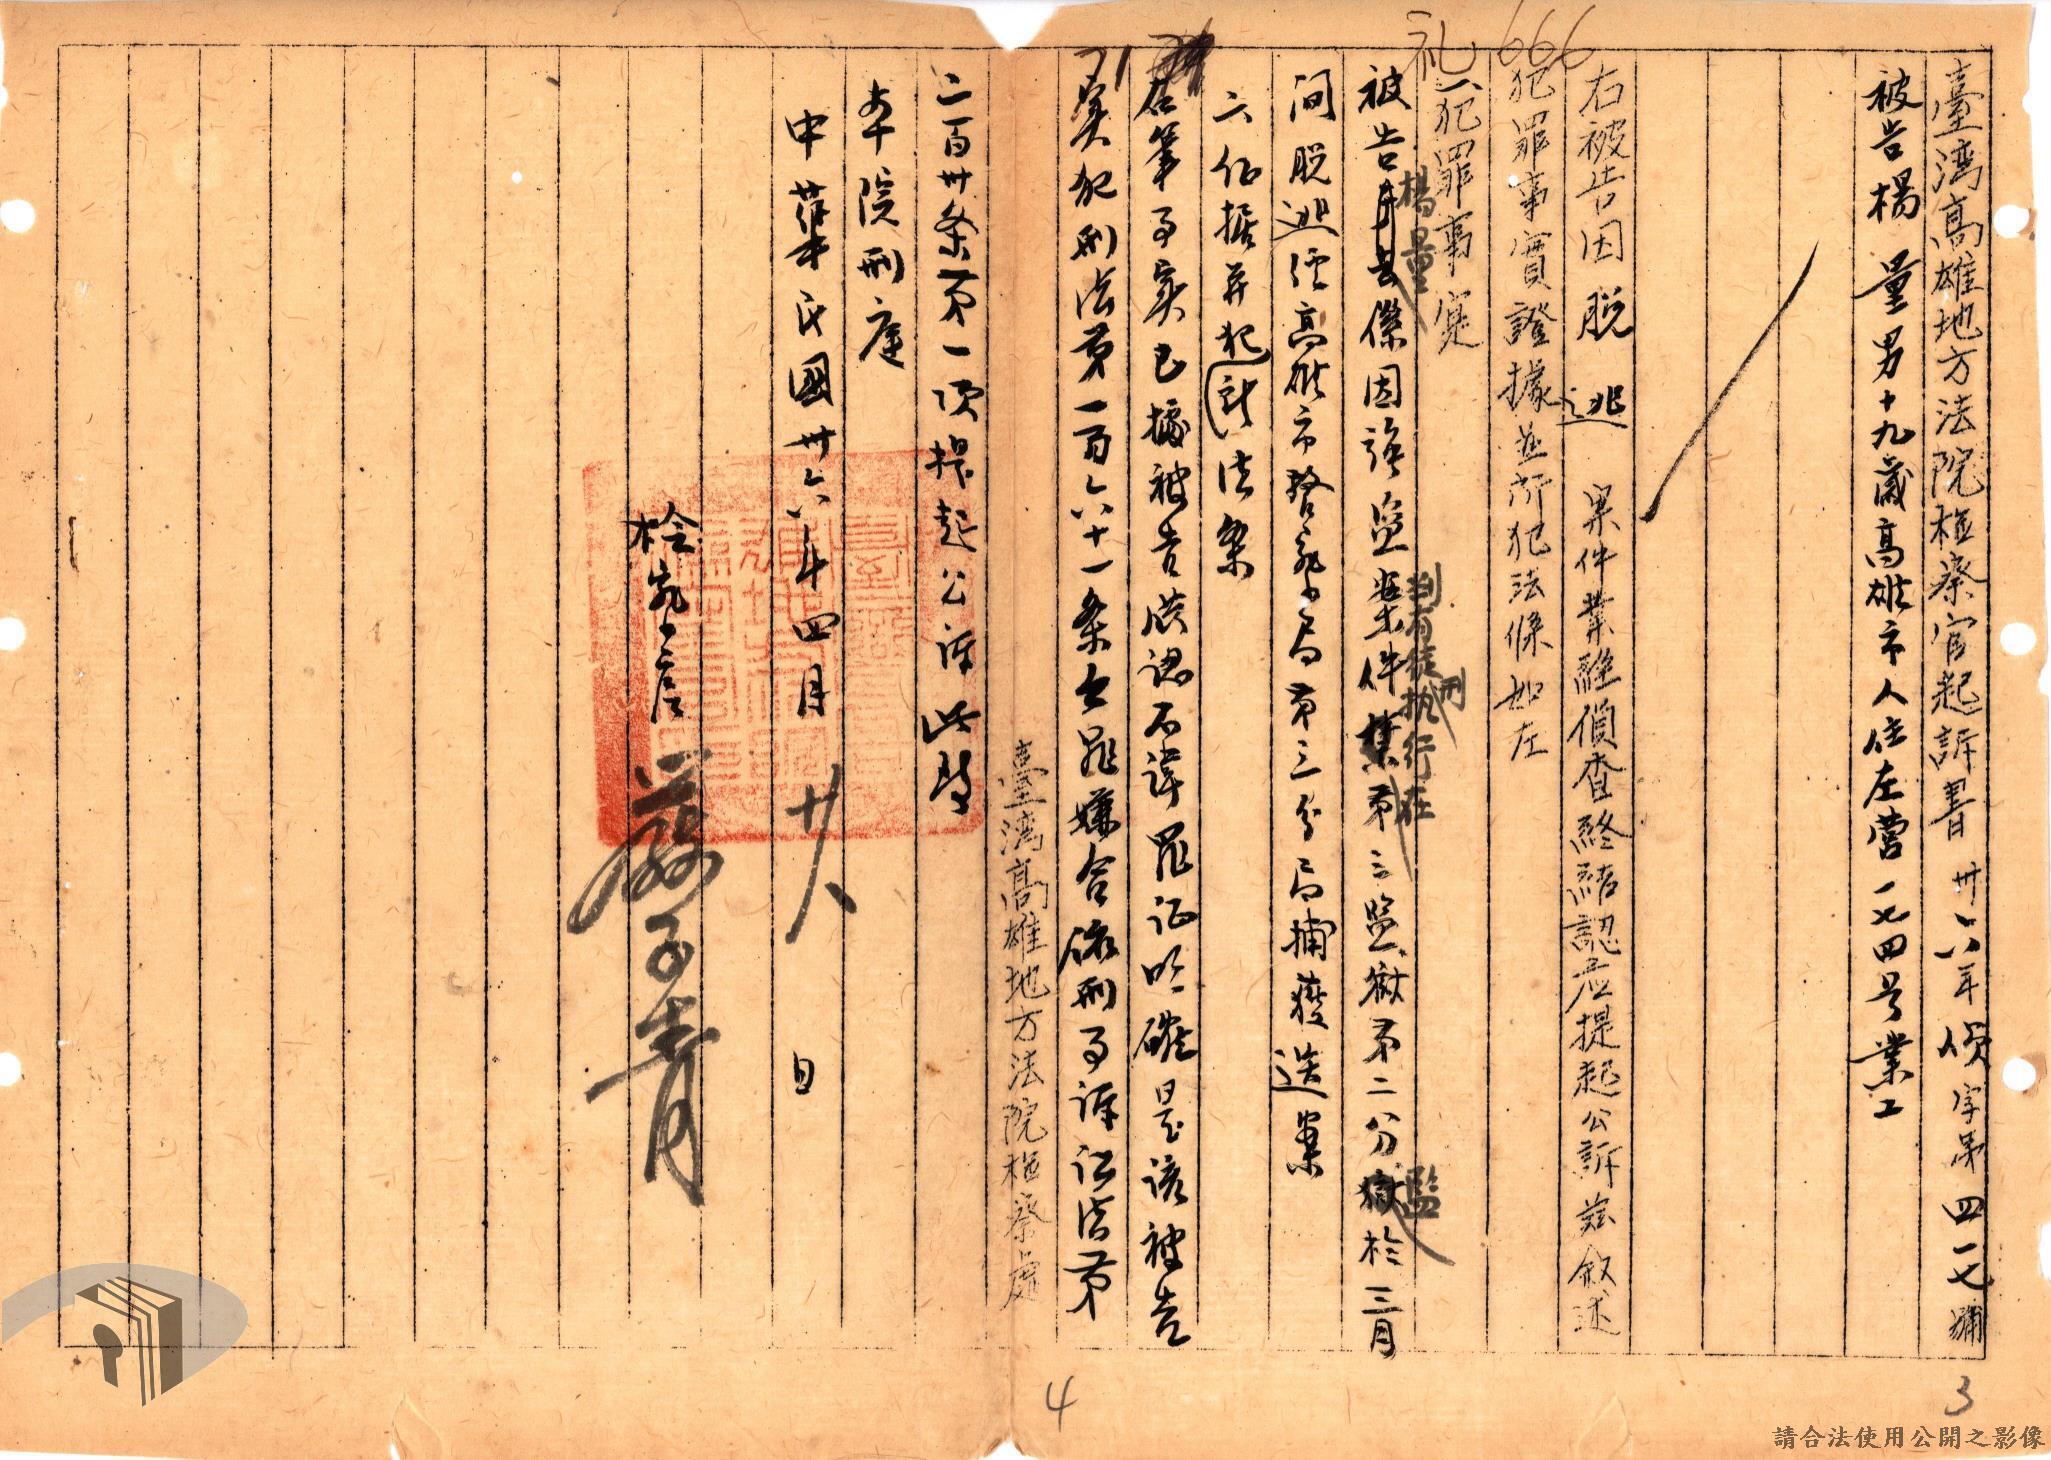 臺灣高雄地方法院檢察官起訴書 卅六年 字第四一七號
被告楊 量 男十九歲高雄市人住左營一七四号業工
右被告因 脫 逃 案件業經偵查終結認应提起公訴茲敘述
犯罪事實證據並所犯法條如左
一、犯罪事實
被告楊量係因強盜案件判有徒刑執行在第三監獄第二分監於三月
間脫逃經高雄市警察局第三分局捕獲送案
二、証據并犯法条
右筆事實已據被告供認不諱罪证明確是该被告
實犯刑法第一百六十一条之罪嫌合依刑事诉讼法第
二百卅条第一項提起公诉此致
本院刑庭
中華民國卅六年四月廿八日
檢察官
臺灣高雄地方法院檢察處
礼 666
71
3
4
請合法使用公開之影像